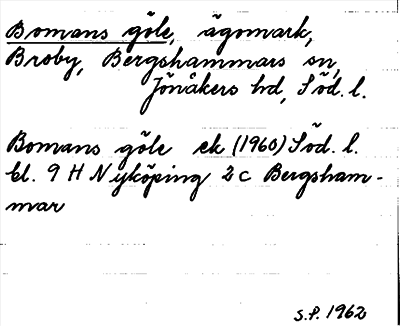 Bomans göle, ägomark,
Broby, Bergshammars sn,
Jönåkers hd, Söd. l.
Bomans göle ek (1960) Söd. l.
bl. 9 H Nyköping 2 c Bergsham-
mar
S.P. 1962